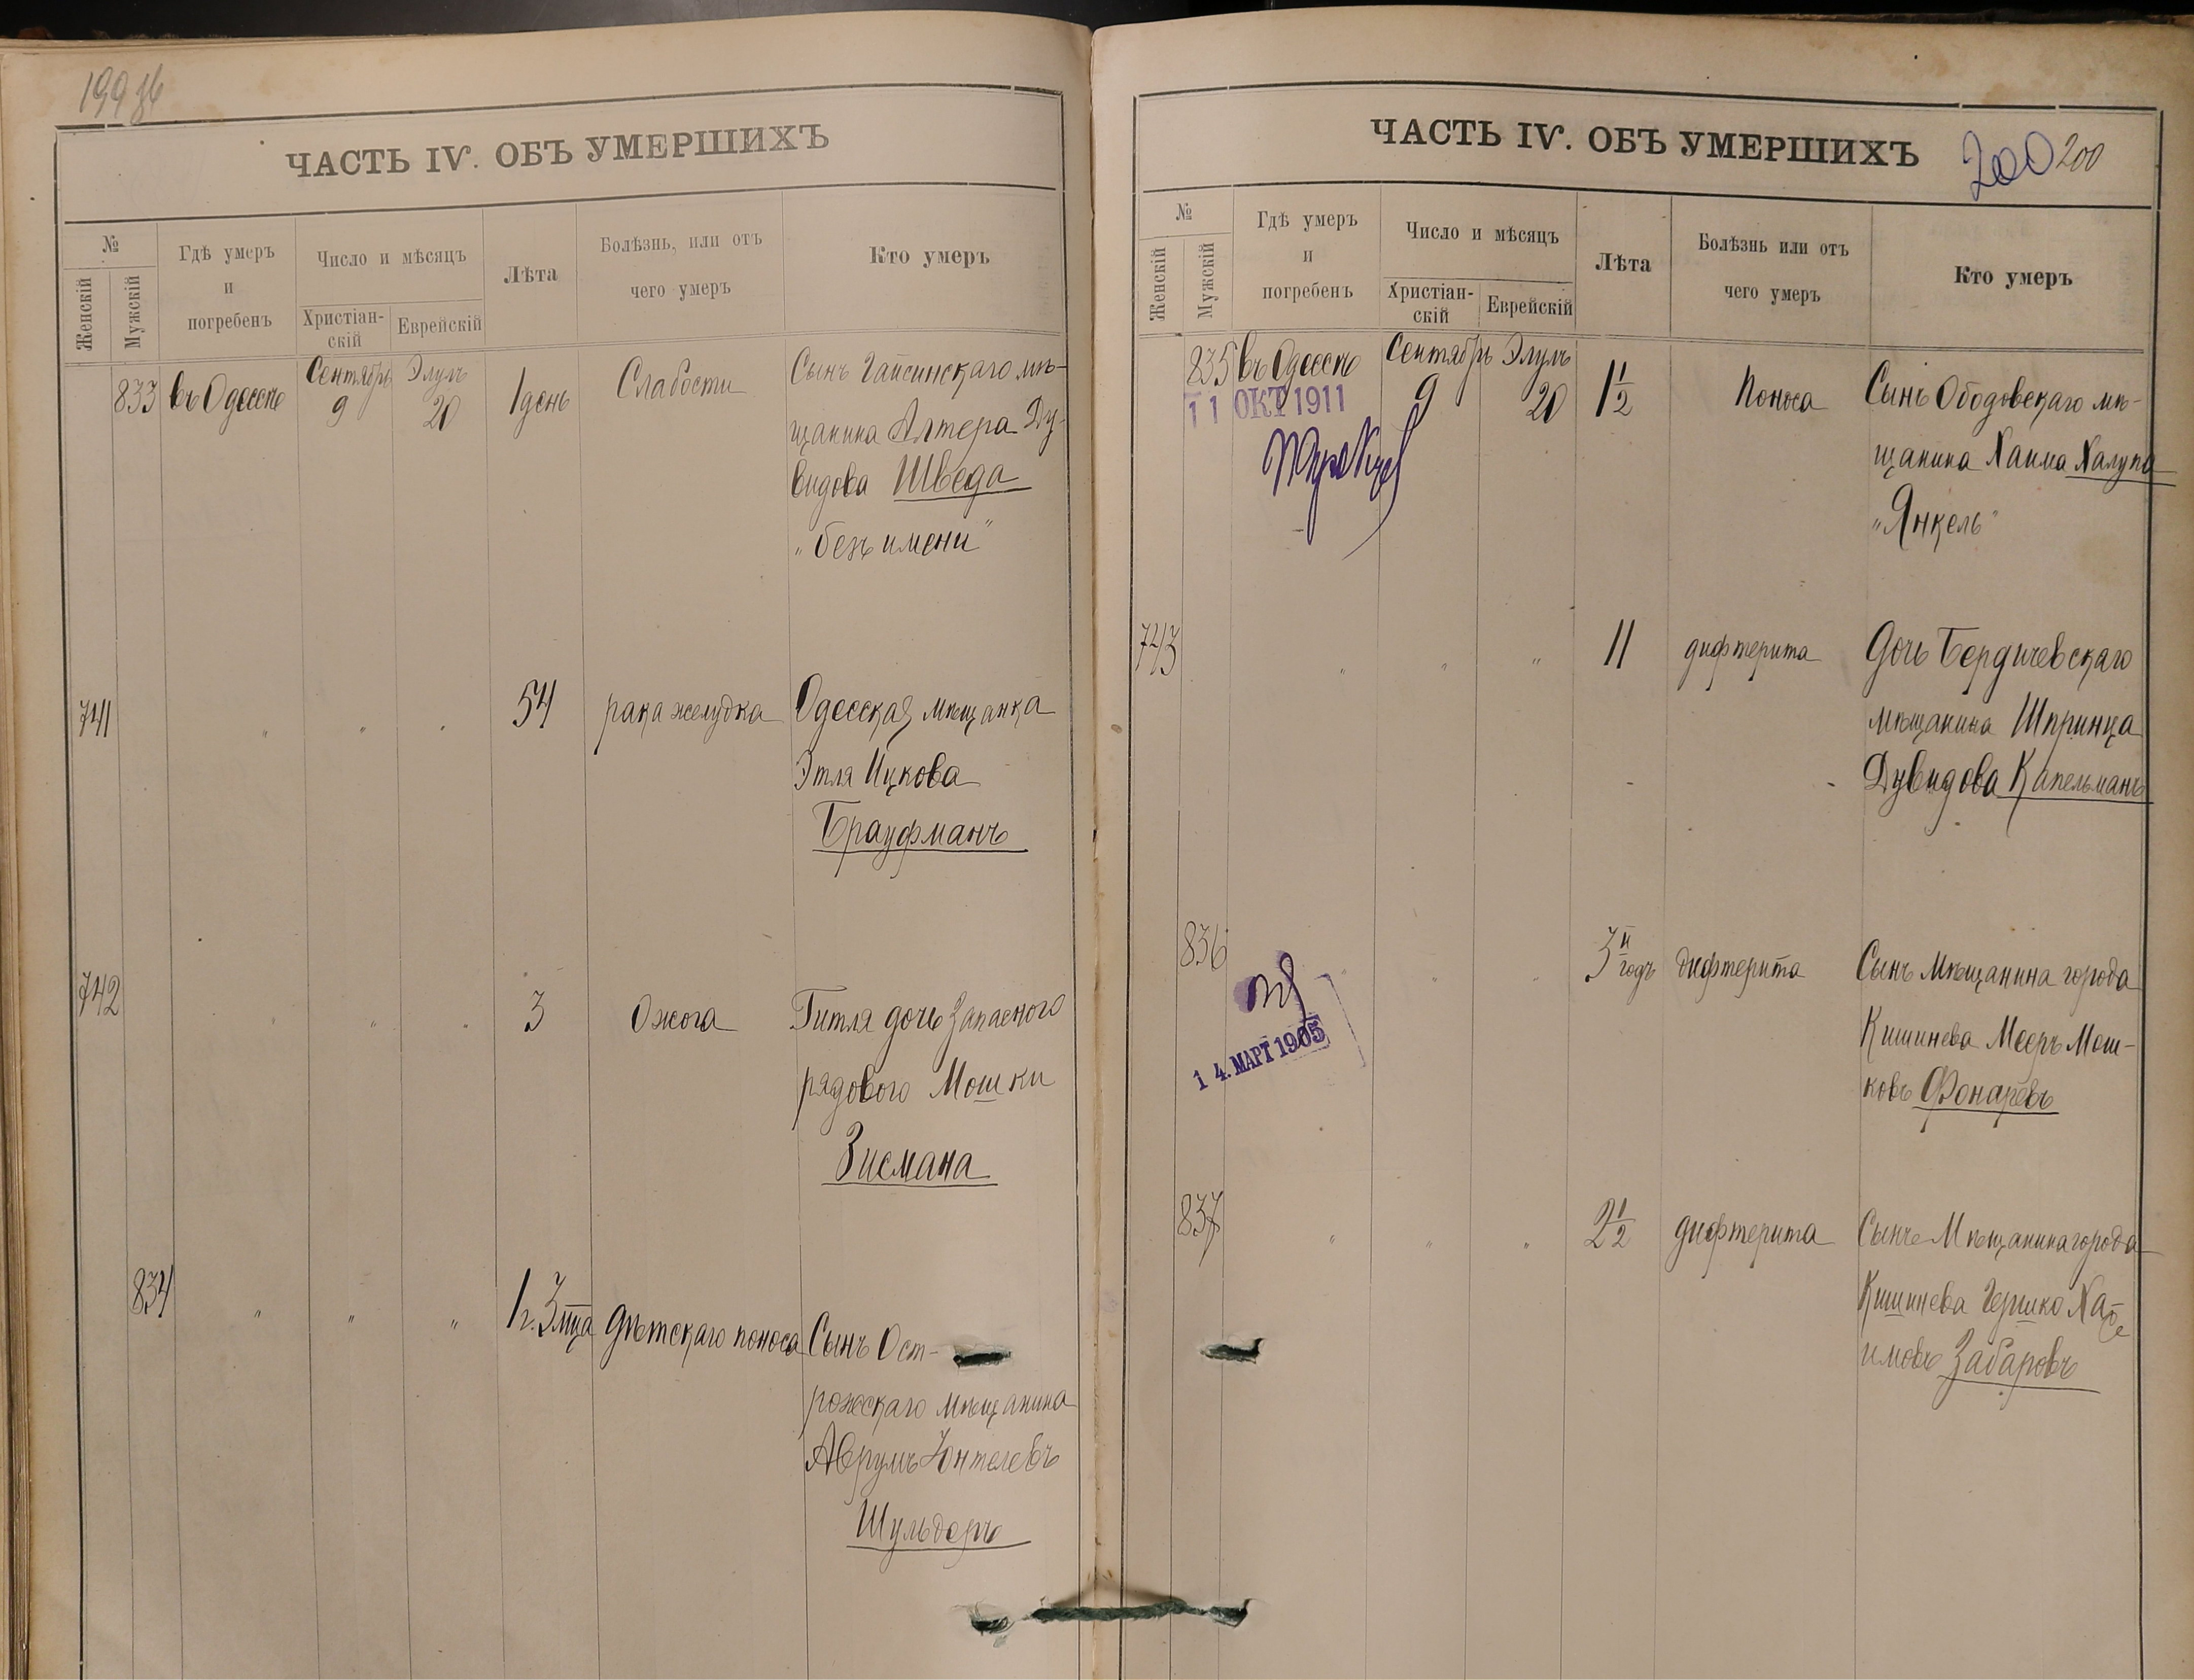 199
ЧАСТЬ IV. ОБЪ УМЕРШИХЪ
№
Женскій
Мужскій
Гдѣ умеръ
и
погребенъ
Число и мѣсяцъ
Христіан-
скій
Еврейскій
Лѣта
Болѣзнь, или отъ
чего умеръ
Кто умеръ
833 въ Одессѣ Сентябрь 9 Элулъ 20 1 день Слабости Сынъ Гайсинскаго мѣ-
щанина Алтера Ду-
видова Шведа
"безъ имени"
741 " " " 54 рака желудка Одесская мѣщанка
Этля Ицкова
Брауфманъ
742 " " " 3 Ожога Гитля дочь Запасного
рядового Мошки
Зисмана
834 " " " 1 г. 3 мца дѣтскаго поноса Сынъ Ост-
рожскаго мѣщанина
Аврумъ Юнтелевъ
Шульдеръ
ЧАСТЬ IV. ОБЪ УМЕРШИХЪ
200 200
№
Женскій
Мужскій
Гдѣ умеръ
и
погребенъ
Число и мѣсяцъ
Христіан-
скій
Еврейскій
Лѣта
Болѣзнь или отъ
чего умеръ
Кто умеръ
835 въ Одессѣ Сентябрь 9 Элулъ 20 1 1/2 Поноса Сынъ Ободовскаго мѣ-
щанина Хаима Халупа
"Янкель"
11 ОКТ 1911
743 " " " 11 дифтерита Дочь Бердичевскаго
мѣщанина Шпринца
Дувидова Капельманъ
836 " " " 3й годъ дифтерита Сынъ Мѣщанина города
Кишинева Мееръ Мош-
ковъ Фонаревъ
14. МАРТ 1905
837 " " " 2 1/2 дифтерита Сынъ Мѣщанина города
Кишинева Гершко Ха-
имовъ Забаровъ